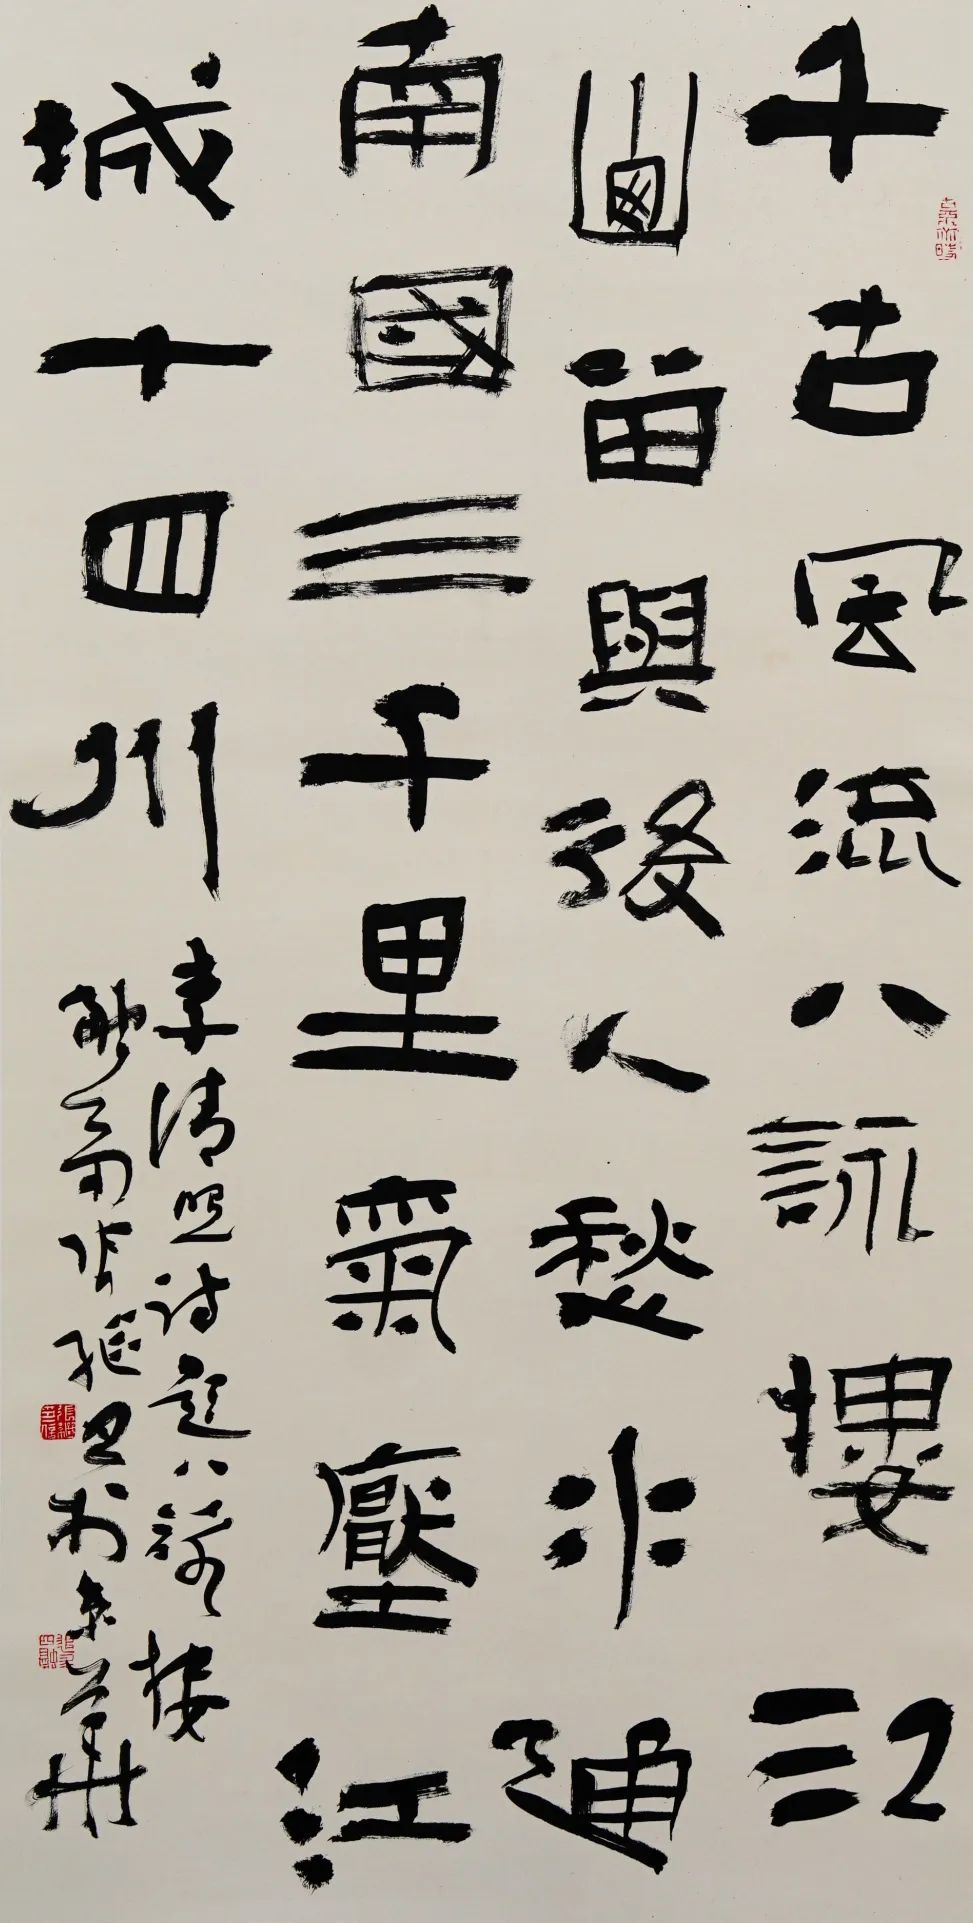 千古風流八詠樓江
山留與後人愁水通
南國三千里氣壓江
城十四州
李清照詩題八詠樓
融齋張繼書於京華